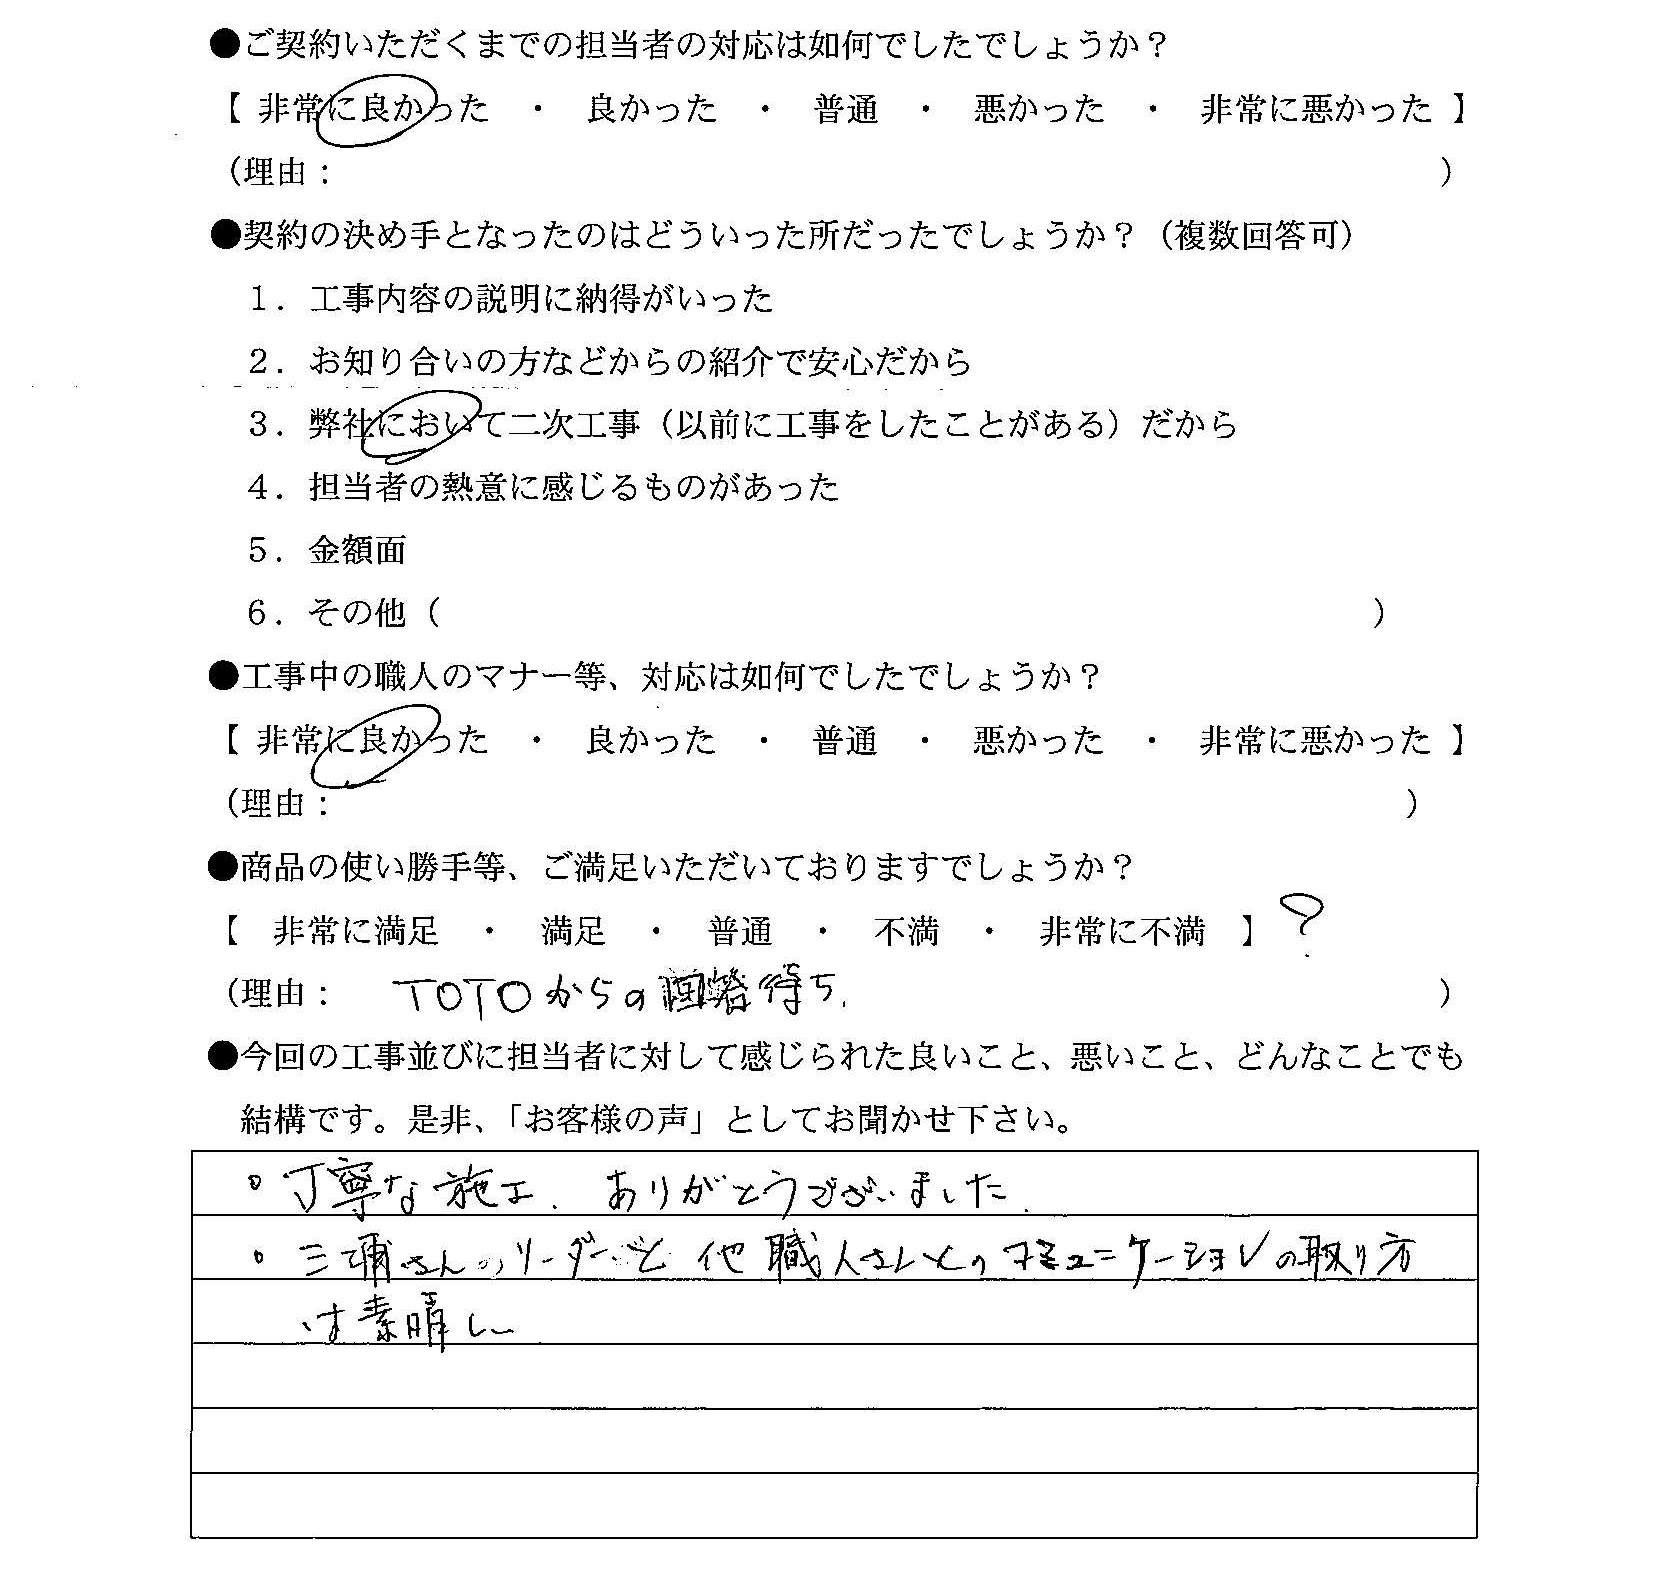 ●ご契約いただくまでの担当者の対応は如何でしたでしょうか？
【 非常に良かった ・ 良かった ・ 普通 ・ 悪かった ・ 非常に悪かった 】
（理由： ）
●契約の決め手となったのはどういった所だったでしょうか？（複数回答可）
１．工事内容の説明に納得がいった
２．お知り合いの方などからの紹介で安心だから
３．弊社において二次工事（以前に工事をしたことがある）だから
４．担当者の熱意に感じるものがあった
５．金額面
６．その他（ ）
●工事中の職人のマナー等、対応は如何でしたでしょうか？
【 非常に良かった ・ 良かった ・ 普通 ・ 悪かった ・ 非常に悪かった 】
（理由： ）
●商品の使い勝手等、ご満足いただいておりますでしょうか？
【 非常に満足 ・ 満足 ・ 普通 ・ 不満 ・ 非常に不満 】 ?
（理由： TOTOからの回答待ち. ）
●今回の工事並びに担当者に対して感じられた良いこと、悪いこと、どんなことでも
結構です。是非、「お客様の声」としてお聞かせ下さい。
○丁寧な施工. ありがとうございました.
○三浦さんのリーダーと 他職人さんとのコミュニケーションの取り方
は素晴しい